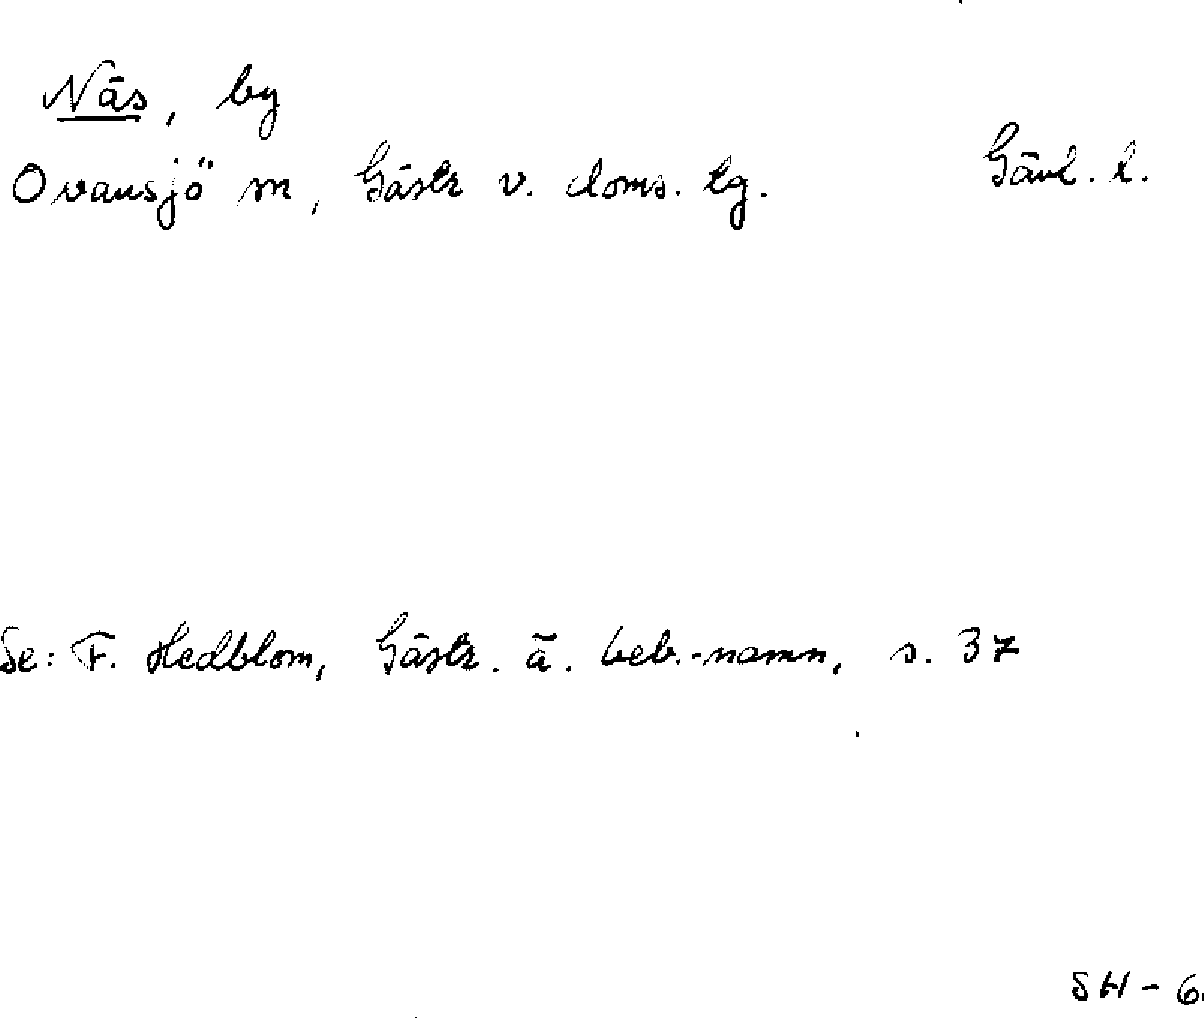 Näs, by
Ovansjö sn, Gästr v. doms. tg. Gävl. l.
Se: F. Hedblom, Gästr. ä. beb.-namn, s. 37
SH - 6